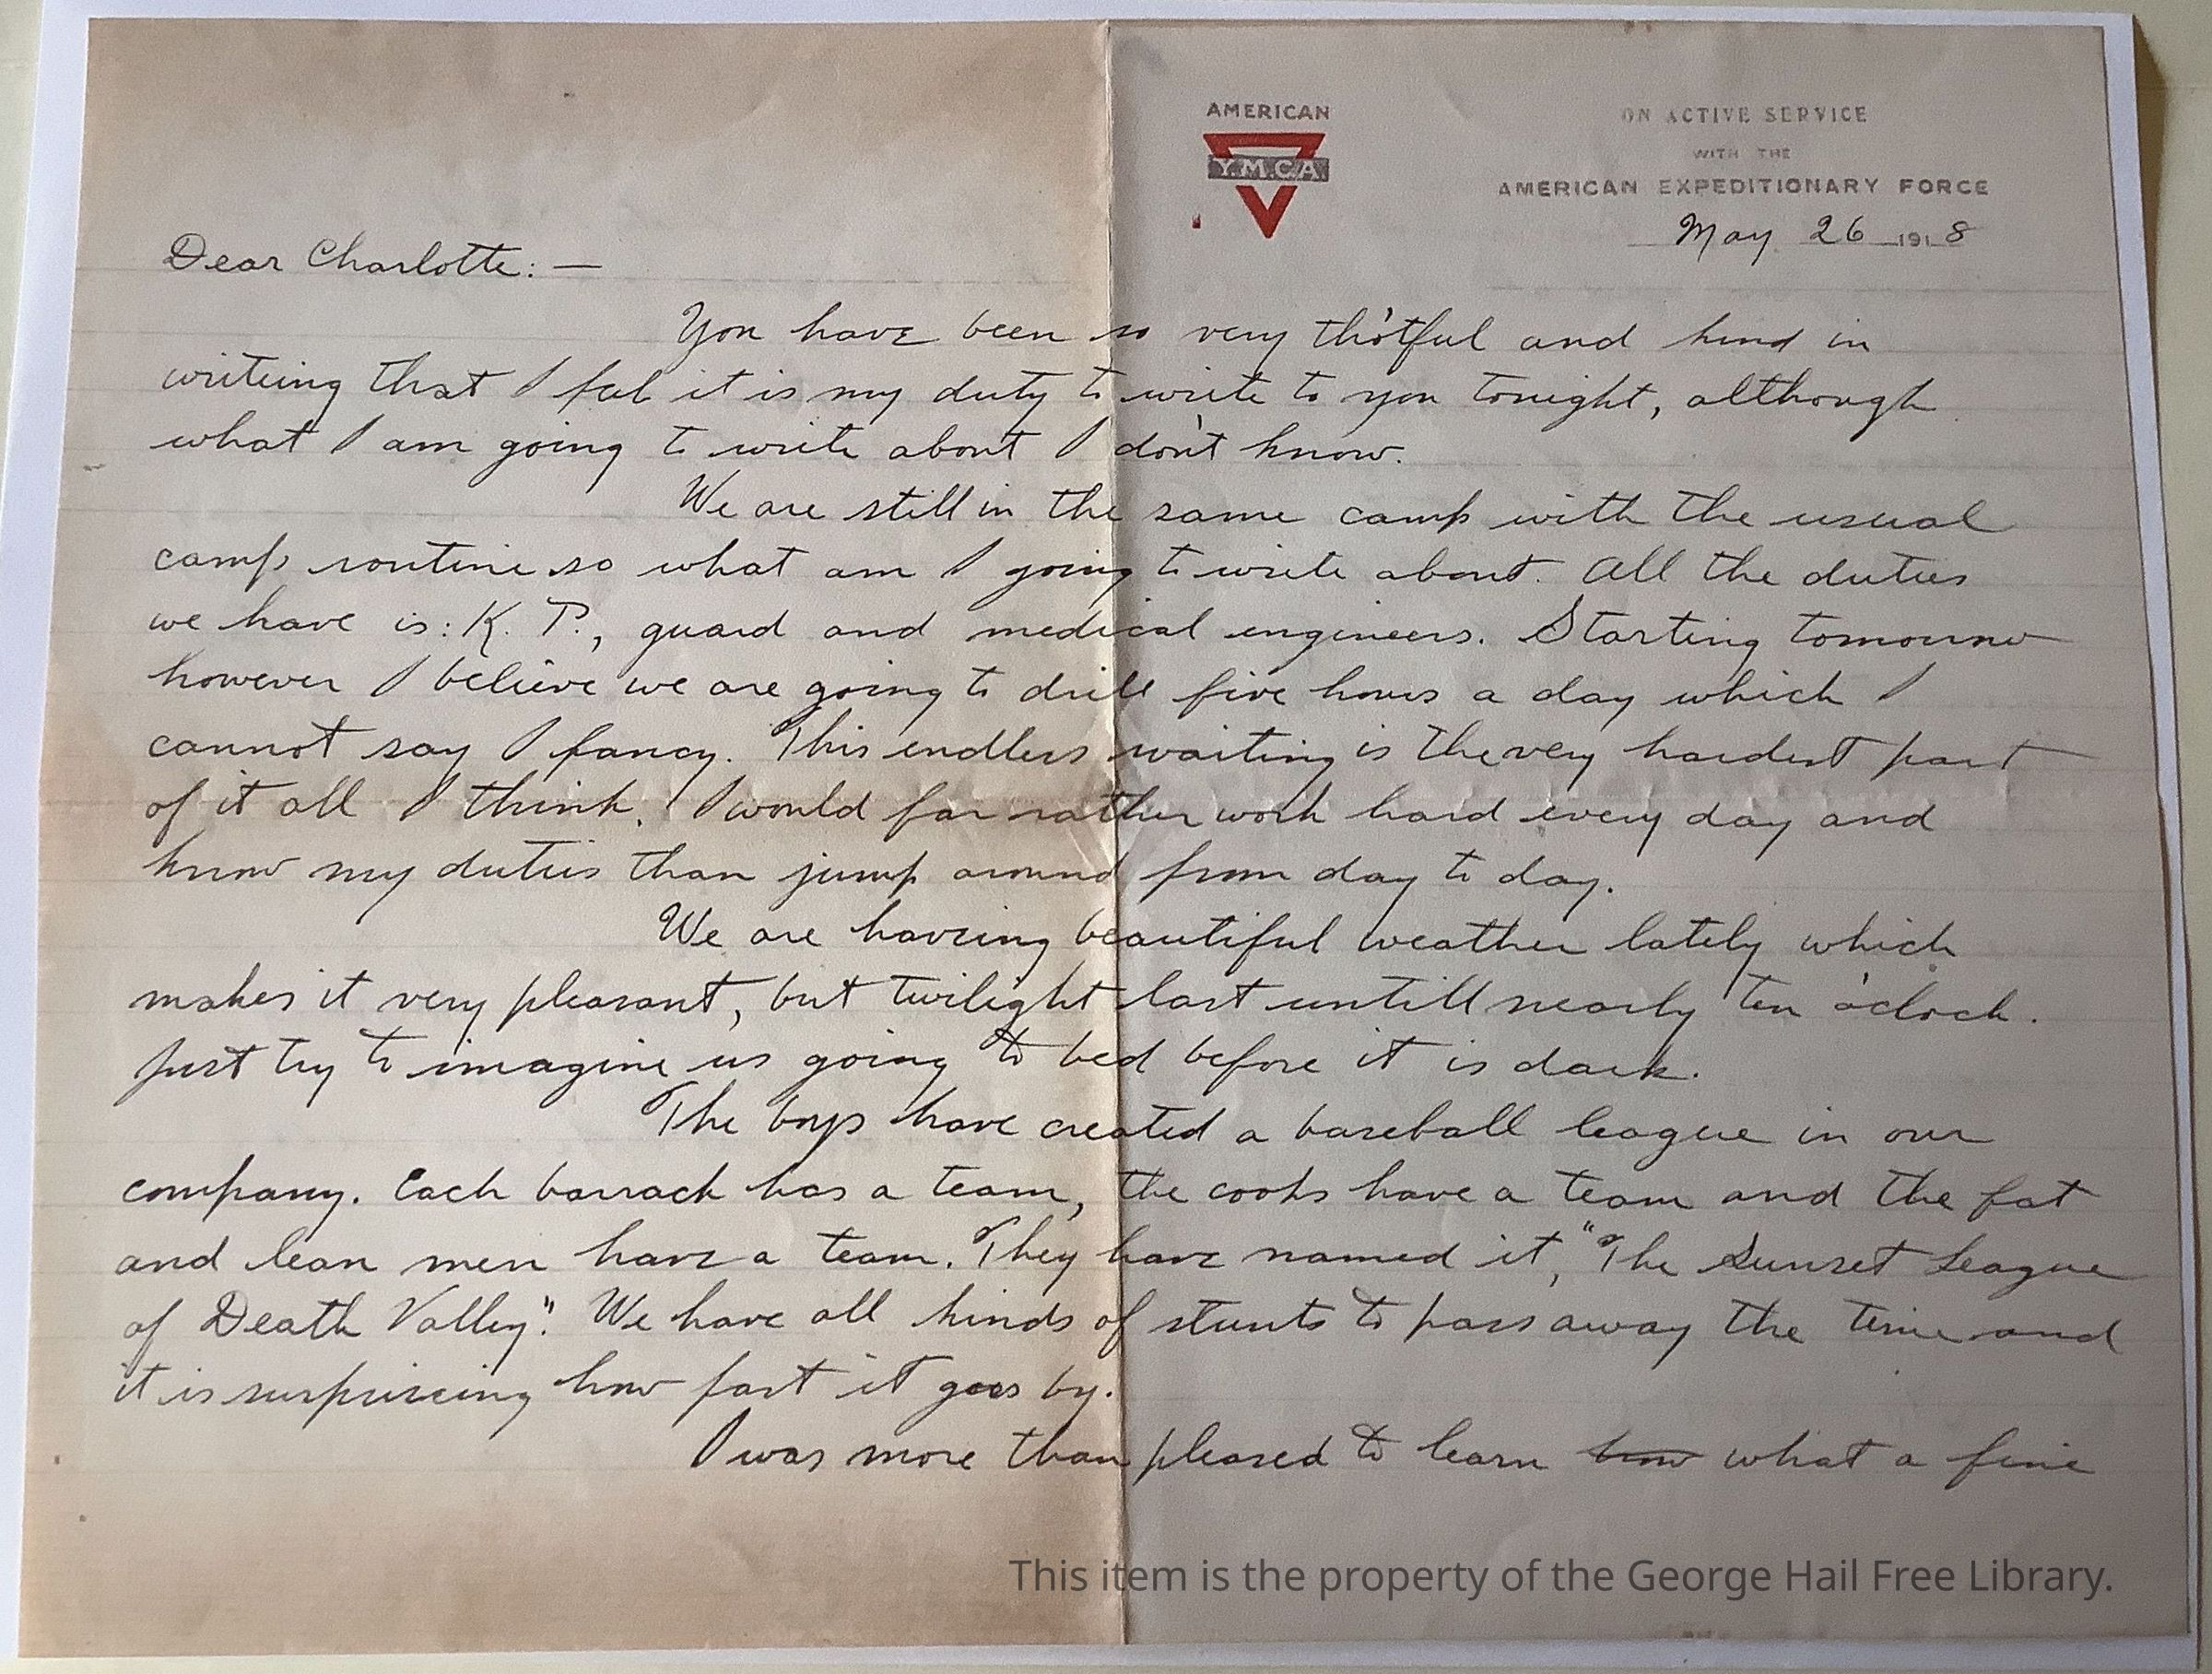 AMERICAN
Y.M.C.A
ON ACTIVE SERVICE
WITH THE
AMERICAN EXPEDITIONARY FORCE
May 26 1918
Dear Charlotte: —
You have been so very tho'tful and kind in
writeing that I feel it is my duty to write to you tonight, although
what I am going to write about I don't know.
We are still in the same camp with the usual
camp routine so what am I going to write about. All the duties
we have is: K. P., guard and medical engineers. Starting tomourow
however I believe we are going to drill five hours a day which I
cannot say I fancy. This endless waiting is the very hardest part
of it all I think. I would far rather work hard every day and
know my duties than jump around from day to day.
We are haveing beautiful weather lately which
makes it very pleasant, but twilight last untill nearly ten o'clock.
Just try to imagine us going to bed before it is dark.
The boys have created a baseball league in our
company. Each barrack has a team, the cooks have a team and the fat
and lean men have a team. They have named it, "The Sunset League
of Death Valley". We have all kinds of stunts to pass away the time and
it is surpriseing how fast it goes by.
I was more than pleased to learn how what a fine
This item is the property of the George Hail Free Library.